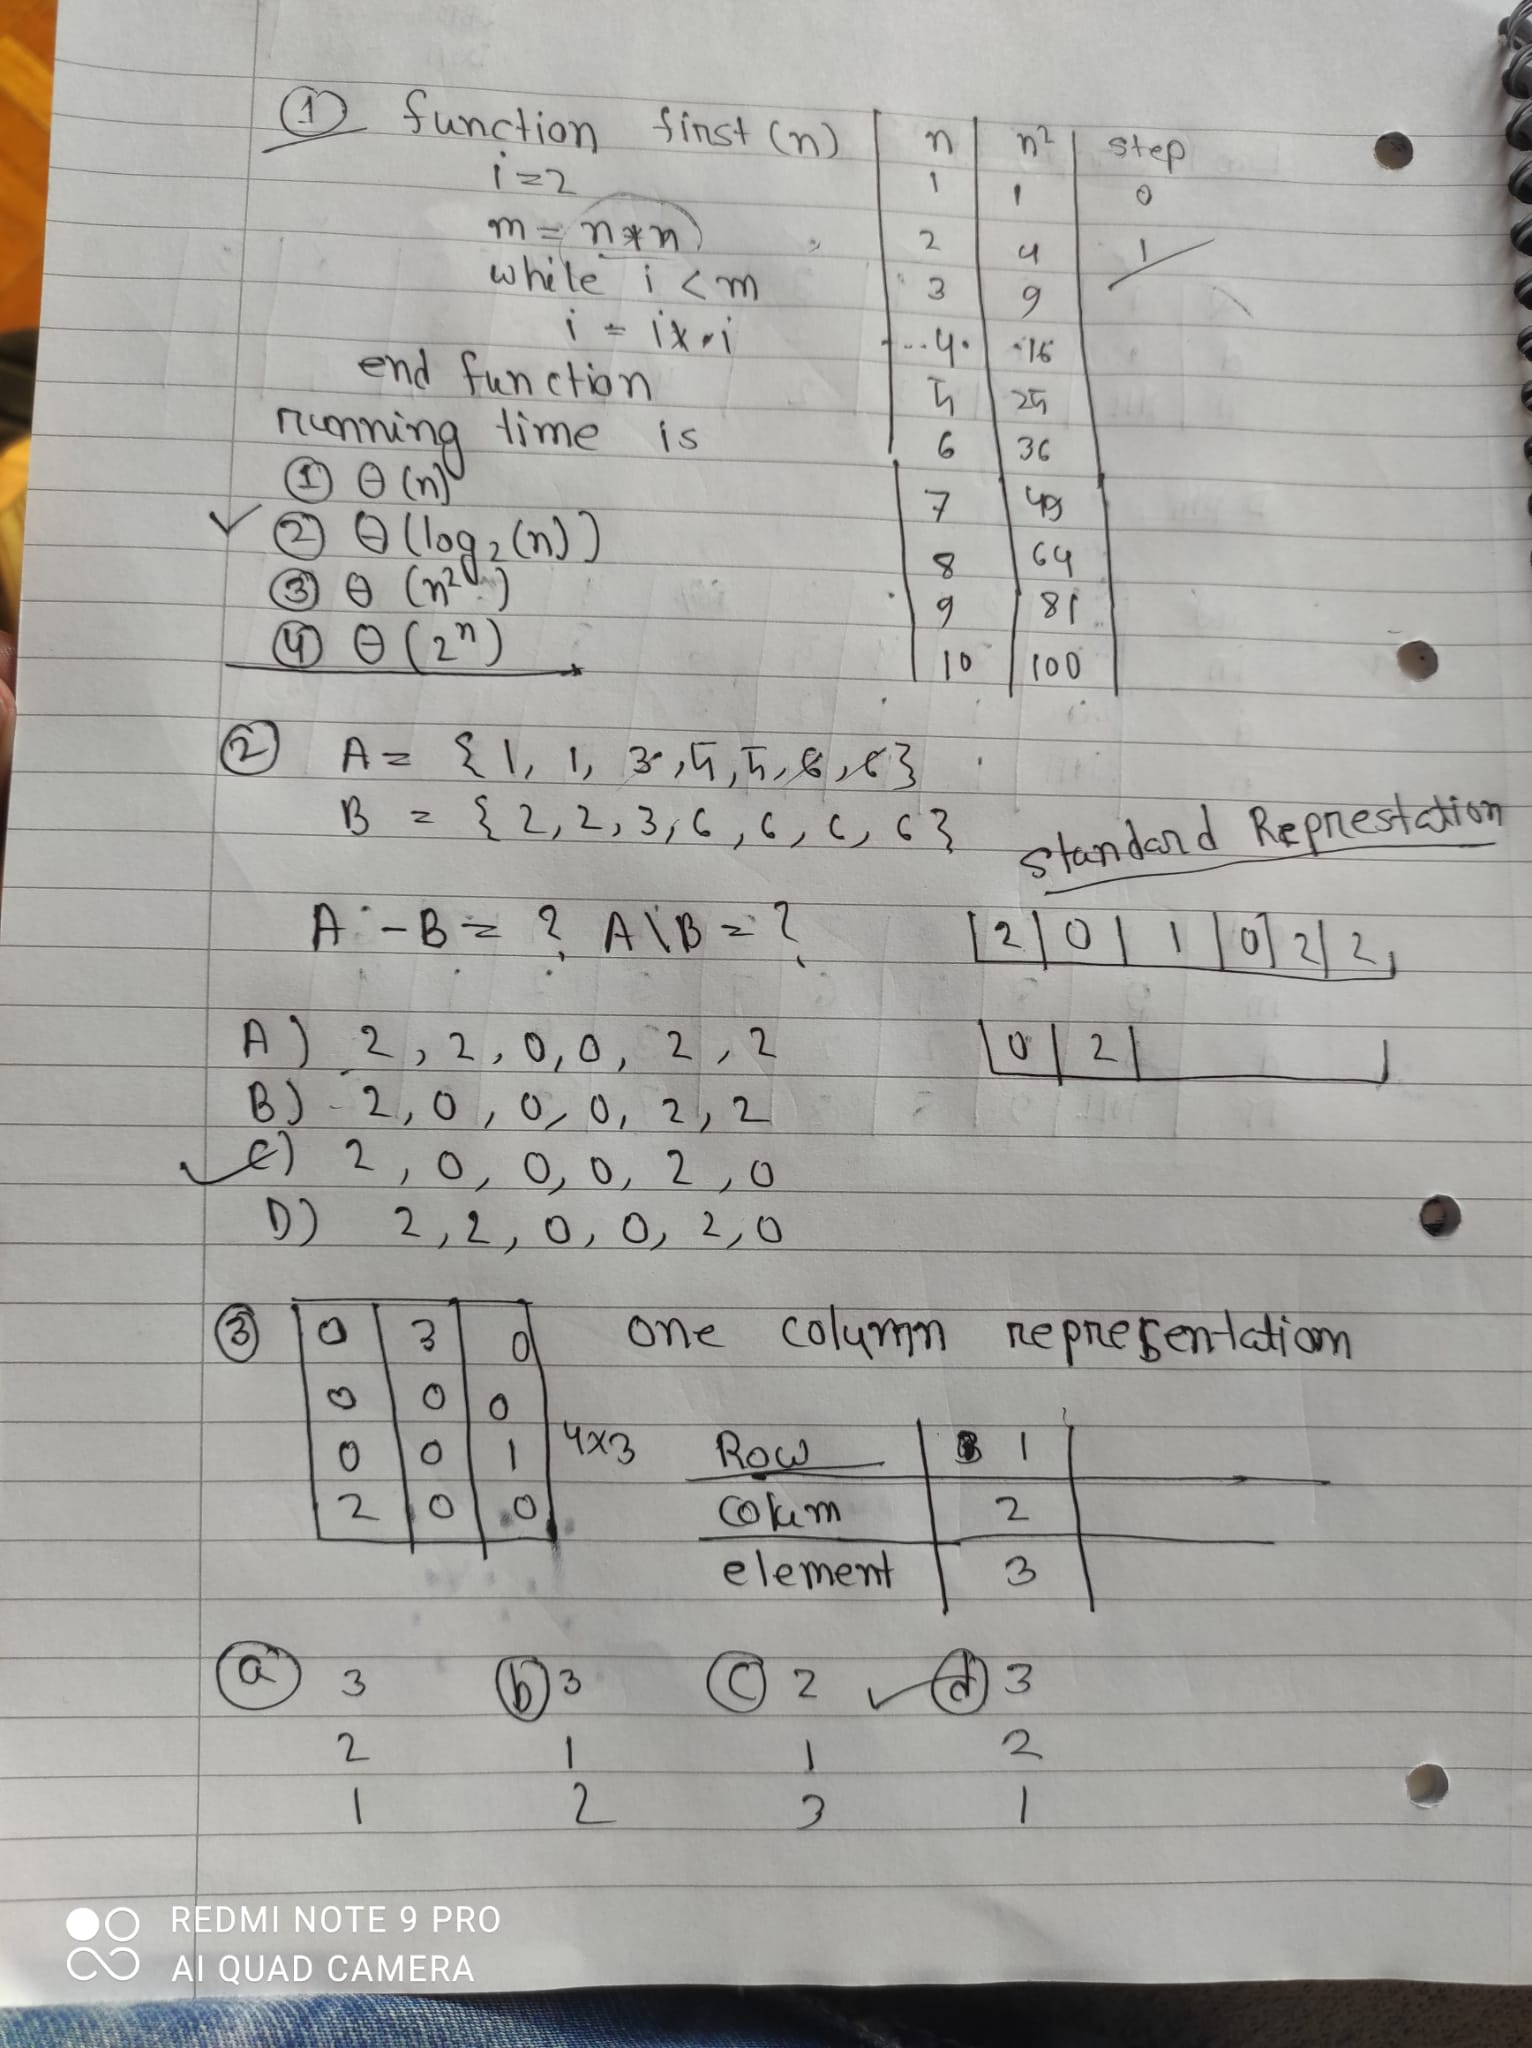 ① function first (n)
i = 2
m = n*n
while i < m
i = i x i
end function
running time is
① Θ (n)
✓ ② Θ (log₂ (n))
③ Θ (n² )
④ Θ (2ⁿ)
n | n² | step
1 | 1 | 0
2 | 4 | 1
3 | 9
4 | 16
5 | 25
6 | 36
7 | 49
8 | 64
9 | 81
10 | 100
② A = {1, 1, 3, 5, 5, 6, 6}
B = {2, 2, 3, 6, 6, 6, 6}
A - B = ? A \ B = ?
standard Represtation
2 | 0 | 1 | 0 | 2 | 2
0 | 2 |
A) 2, 2, 0, 0, 2, 2
B) 2, 0, 0, 0, 2, 2
✓ C) 2, 0, 0, 0, 2, 0
D) 2, 2, 0, 0, 2, 0
③ 0 | 3 | 0
0 0 0
0 0 1
2 0 0
4x3
one column representation
Row | 1
Colum | 2
element | 3
ⓐ 3 ⓑ 3 ⓒ 2 ✓ ⓓ 3
2 1 1 2
1 2 3 1
REDMI NOTE 9 PRO
AI QUAD CAMERA